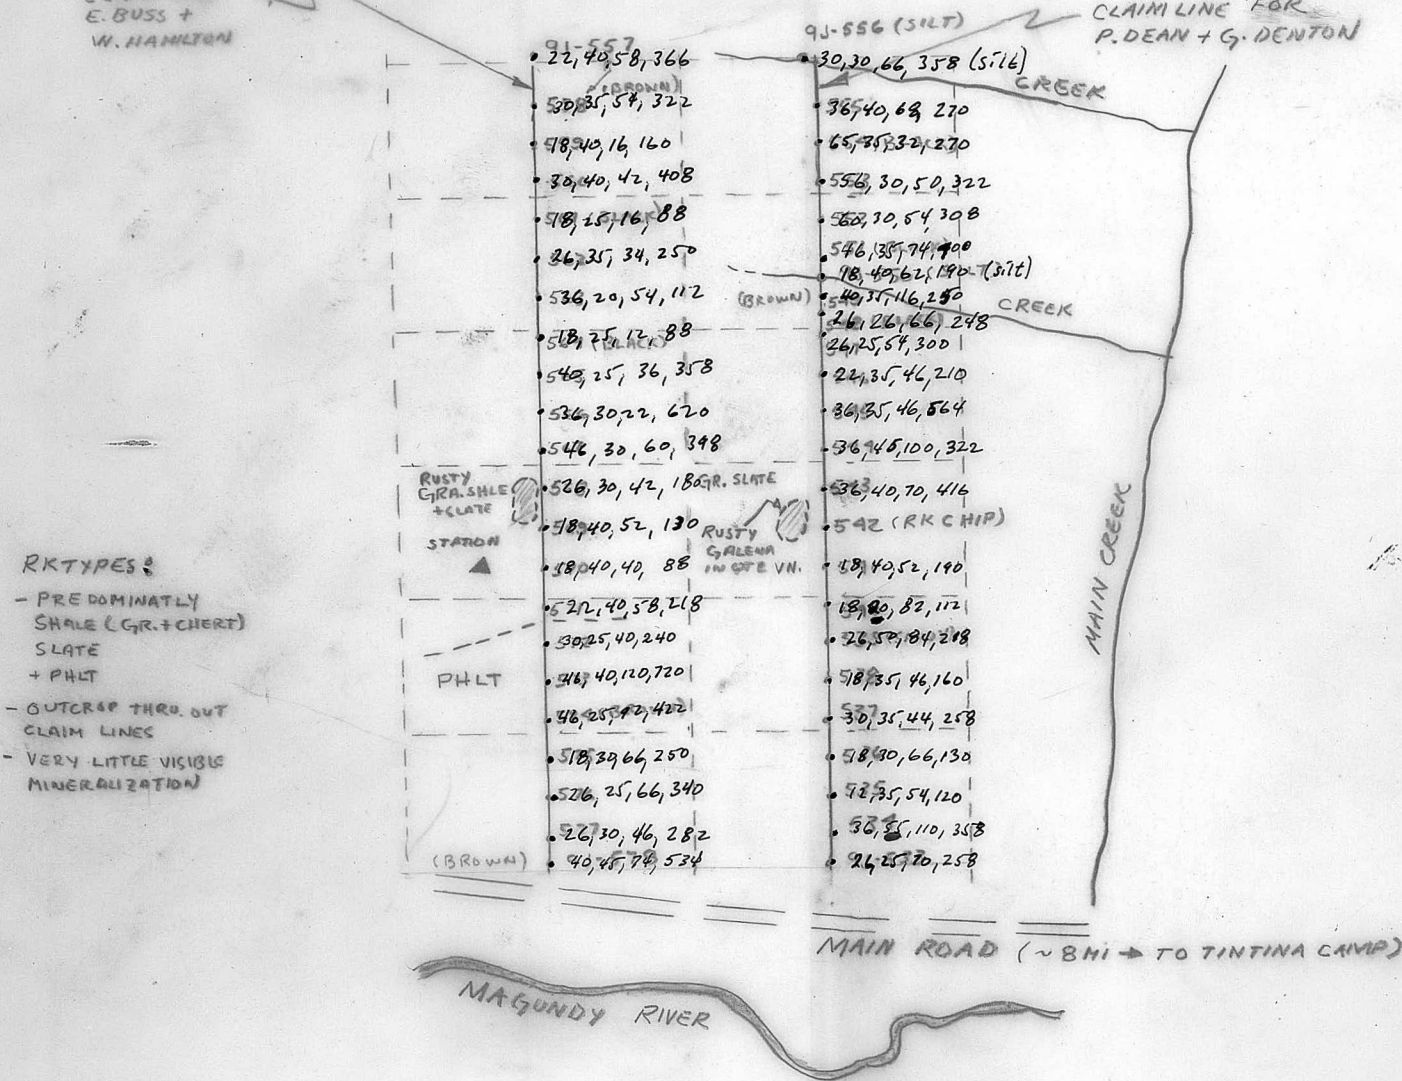 E. BUSS +
W. HAMILTON
91-557
22, 40, 58, 366
(BROWN)
30, 35, 54, 322
18, 40, 16, 160
30, 40, 42, 408
18, 25, 16, 88
26, 35, 34, 250
36, 20, 54, 112
18, 25, 12, 88
(BLACK)
40, 25, 36, 358
36, 30, 22, 620
46, 30, 60, 398
26, 30, 42, 180
18, 40, 52, 130
18, 40, 40, 88
22, 40, 58, 218
30, 25, 40, 240
46, 40, 120, 720
46, 25, 92, 422
18, 30, 66, 250
26, 25, 66, 340
26, 30, 46, 282
40, 45, 74, 534
(BROWN)
91-556 (SILT)
CLAIM LINE FOR
P. DEAN + G. DENTON
30, 30, 66, 358 (silt)
CREEK
36, 40, 68, 270
65, 35, 32, 270
56, 30, 50, 322
60, 30, 54, 308
46, 35, 74, 400
18, 40, 62, 190 (silt)
(BROWN)
40, 35, 116, 250
CREEK
26, 26, 66, 248
26, 25, 54, 300
22, 35, 46, 210
36, 35, 46, 564
36, 45, 100, 322
36, 40, 70, 416
542 (RK CHIP)
18, 40, 52, 190
18, 20, 82, 112
26, 50, 84, 218
18, 35, 46, 160
30, 35, 44, 258
18, 30, 66, 130
12, 35, 54, 120
36, 55, 110, 358
26, 25, 70, 258
RUSTY
GRA. SHLE
+ SLATE
STATION
GR. SLATE
RUSTY
GALENA
IN QTZ VN.
PHLT
RK TYPES:
- PREDOMINATLY
SHALE (GR. + CHERT)
SLATE
+ PHLT
- OUTCROP THRO. OUT
CLAIM LINES
- VERY LITTLE VISIBLE
MINERALIZATION
MAIN CREEK
MAIN ROAD (~8MI → TO TINTINA CAMP)
MAGUNDY RIVER